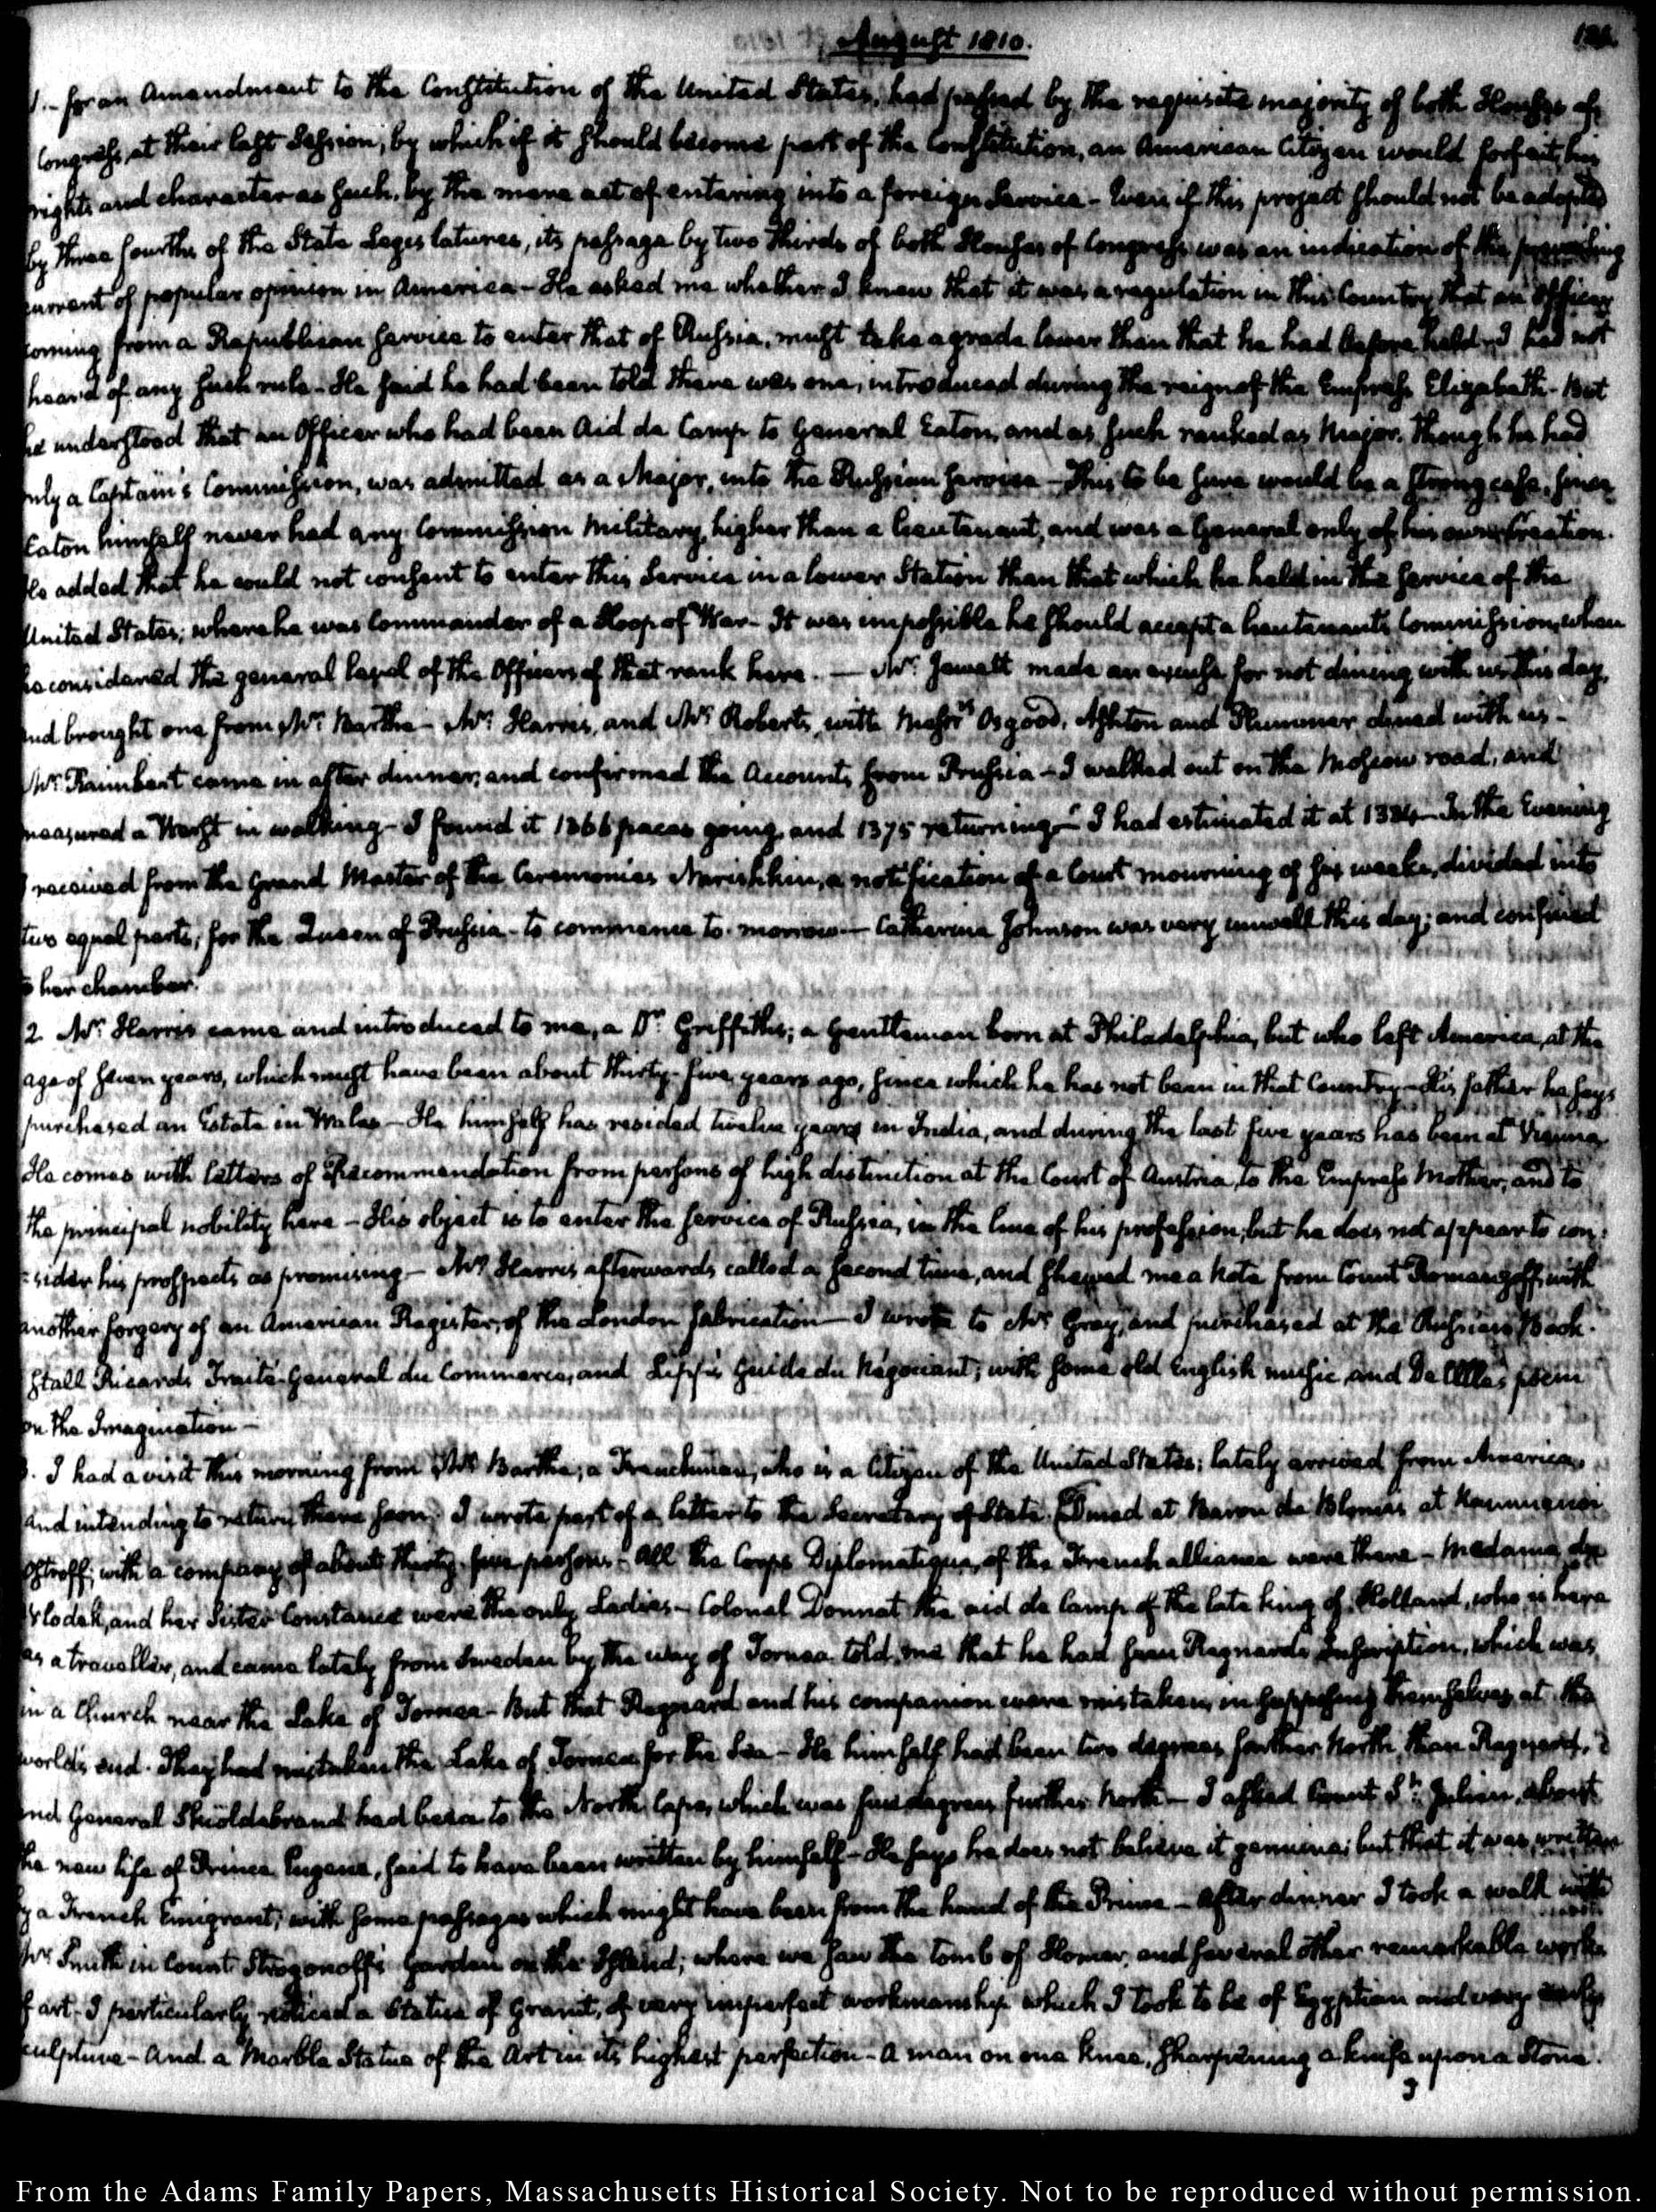 August 1810.
1.- for an Amendment to the Constitution of the United States, had passed by the requisite majority of both Houses of
Congress, at their last Session; by which if it should become part of the Constitution, an American Citizen would forfeit, his
rights and character as such, by the mere act of entering into a foreign Service - Even if this project should not be adopted
by three fourths of the State Legislatures, its passage by two thirds of both Houses of Congress was an indication of the prevailing
current of popular opinion in America - He asked me whether I knew that it was a regulation in this Country that an Officer
coming from a Republican service to enter that of Russia, must take a grade lower than that he had before held - I had not
heard of any such rule - He said he had been told there was one, introduced during the reign of the Empress Elizabeth - But
he understood that an Officer who had been Aid de Camp to General Eaton, and as such ranked as Major, though he had
only a Captain's Commission, was admitted as a Major, into the Russian service - This to be sure would be a strong case, since
Eaton himself never had any Commission Military, higher than a lieutenant, and was a General only of his own Creation.
He added that he could not consent to enter this Service in a lower Station than that which he held in the service of the
United States; where he was Commander of a Sloop of War - It was impossible he should accept a lieutenant's Commission, when
he considered the general level of the Officers of that rank here. — Mr. Jewett made an excuse for not dining with us this day,
and brought one from Mr. Barthe - Mr. Harris, and Mr. Roberts, with Messrs. Osgood, Ashton and Plummer dined with us -
Mr. Raimbert came in after dinner, and confirmed the Accounts from Prussia - I walked out on the Moscow road, and
measured a Werst in walking - I found it 1366 paces going, and 1375 returning - I had estimated it at 1384 - In the Evening
I received from the Grand Master of the Ceremonies Narishkin, a notification of a Court mourning of six weeks, divided into
two equal parts, for the Queen of Prussia - to commence to-morrow — Catherine Johnson was very unwell this day; and confined
to her chamber.
2. Mr. Harris came and introduced to me, a Dr. Griffiths; a Gentleman born at Philadelphia, but who left America, at the
age of seven years, which must have been about thirty-five years ago, since which he has not been in that Country - His father he says
purchased an Estate in Wales - He himself has resided twelve years in India, and during the last five years has been at Vienna
He comes with letters of Recommendation from persons of high distinction at the Court of Austria, to the Empress Mother, and to
the principal nobility here - His object is to enter the service of Russia, in the line of his profession, but he does not appear to con-
=sider his prospects as promising - Mr. Harris afterwards called a second time, and shewed me a Note from Count Romanzoff, with
another forgery of an American Register, of the London fabrication — I wrote to Mr. Gray, and purchased at the Russian Book-
stall Ricard's Traité General du Commerce, and Guide du Negociant; with some old English music, and De Lille's poem
on the Imagination -
3. I had a visit this morning from Mr. Barthe; a Frenchman, who is a Citizen of the United States; lately arrived from America,
and intending to return there soon. I wrote part of a letter to the Secretary of State. Dined at Baron de Blome's at Kammenoi
Ostroff; with a company of about thirty-five persons - All the Corps Diplomatique, of the French alliance were there - Madame de
Vlodek, and her Sister Constance were the only Ladies - Colonel Donnat the aid de Camp of the late king of Holland, who is here
as a traveller, and came lately from Sweden by the way of Tornea told me that he had seen Regnard's Inscription, which was
in a Church near the Lake of Tornea - But that Regnard and his companion were mistaken, in supposing themselves at the
world's end. They had mistaken the Lake of Tornea for the Sea - He himself had been two degrees farther North than Regnard,
and General Skiöldebrand had been to the North Cape, which was five degrees further North — I asked Count St. Julien, about
the new life of Prince Eugene, said to have been written by himself - He says he does not believe it genuine; but that it was written
by a French Emigrant; with some passages which might have been from the hand of the Prince - After dinner I took a walk with
Mr. Smith in Count Strogonoff's Garden on the Island; where we saw the tomb of Homer, and several other remarkable works
of art - I particularly noticed a Statue of Granit, of very imperfect workmanship which I took to be of Egyptian and very early
sculpture - And a Marble Statue of the Art in its highest perfection - A man on one knee, sharpening a knife upon a Stone.
From the Adams Family Papers, Massachusetts Historical Society. Not to be reproduced without permission.